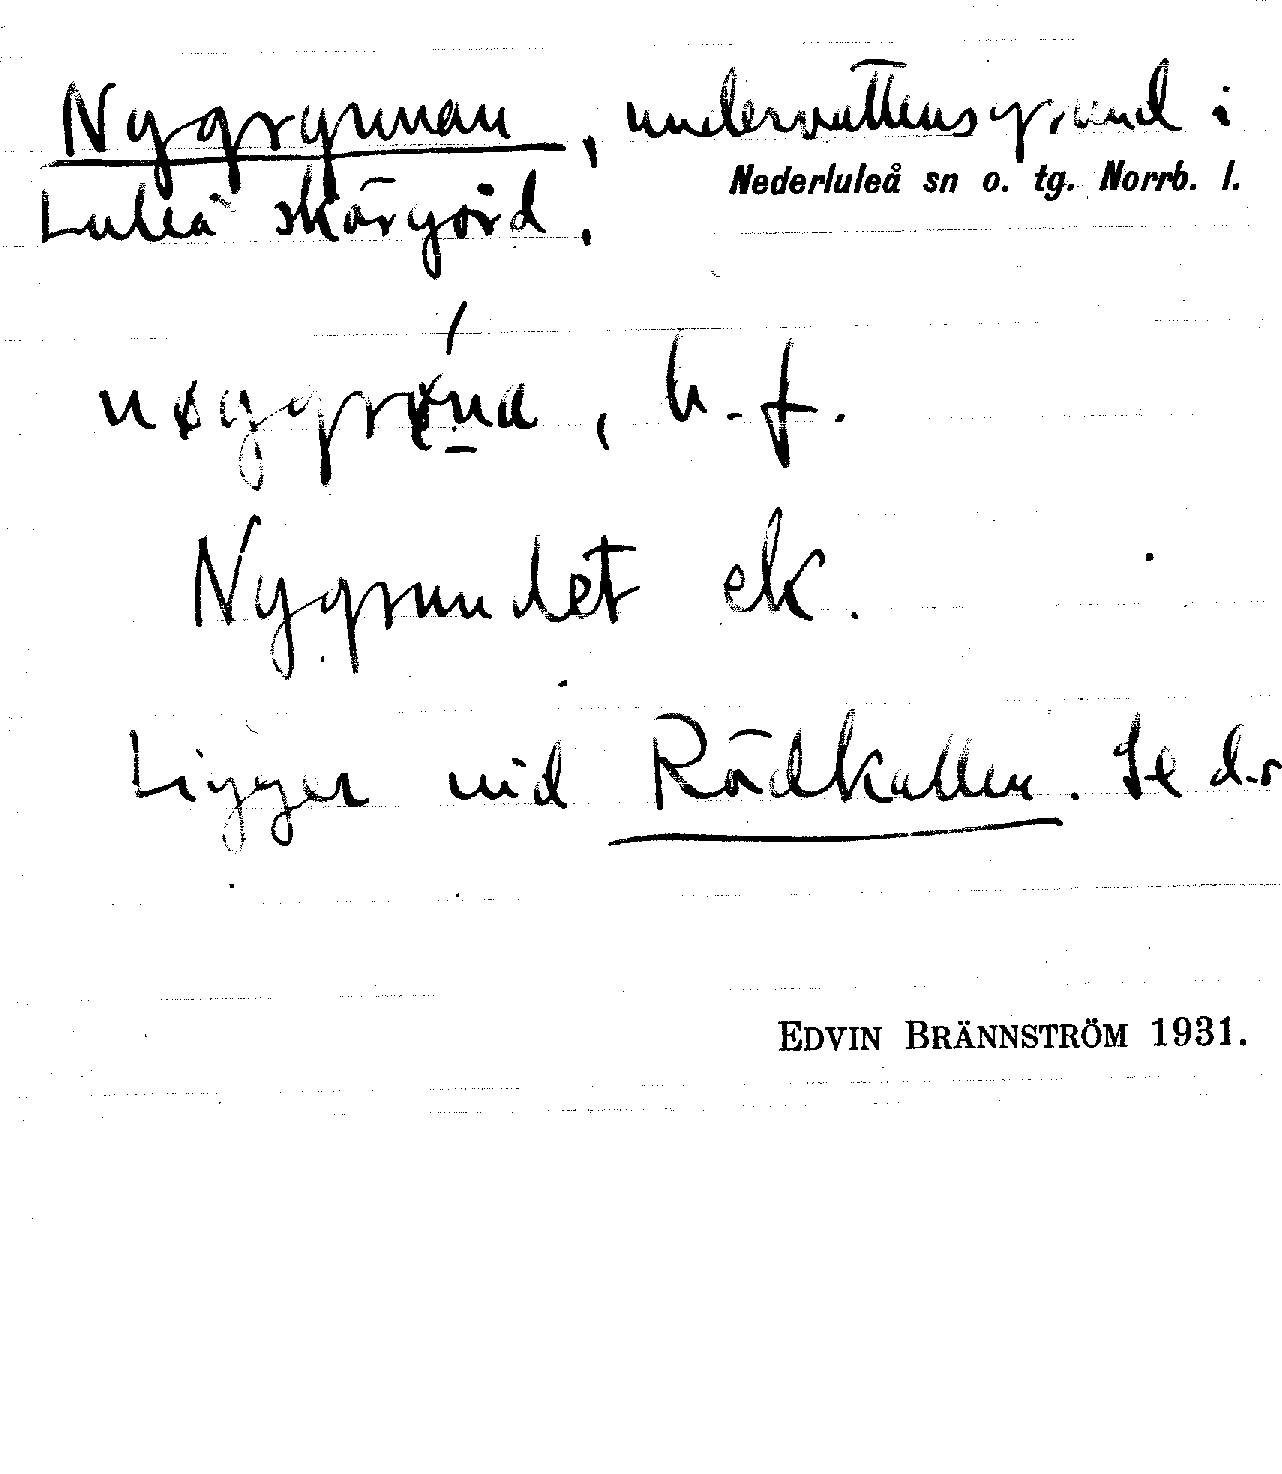 Nygrynnan, undervattensgrund i
Nederluleå sn o. tg. Norrb. l.
Luleå skärgård.
h. f.
Nygrundet ek.
Ligger vid Rödkallen. Se d.o
EDVIN BRÄNNSTRÖM 1931.